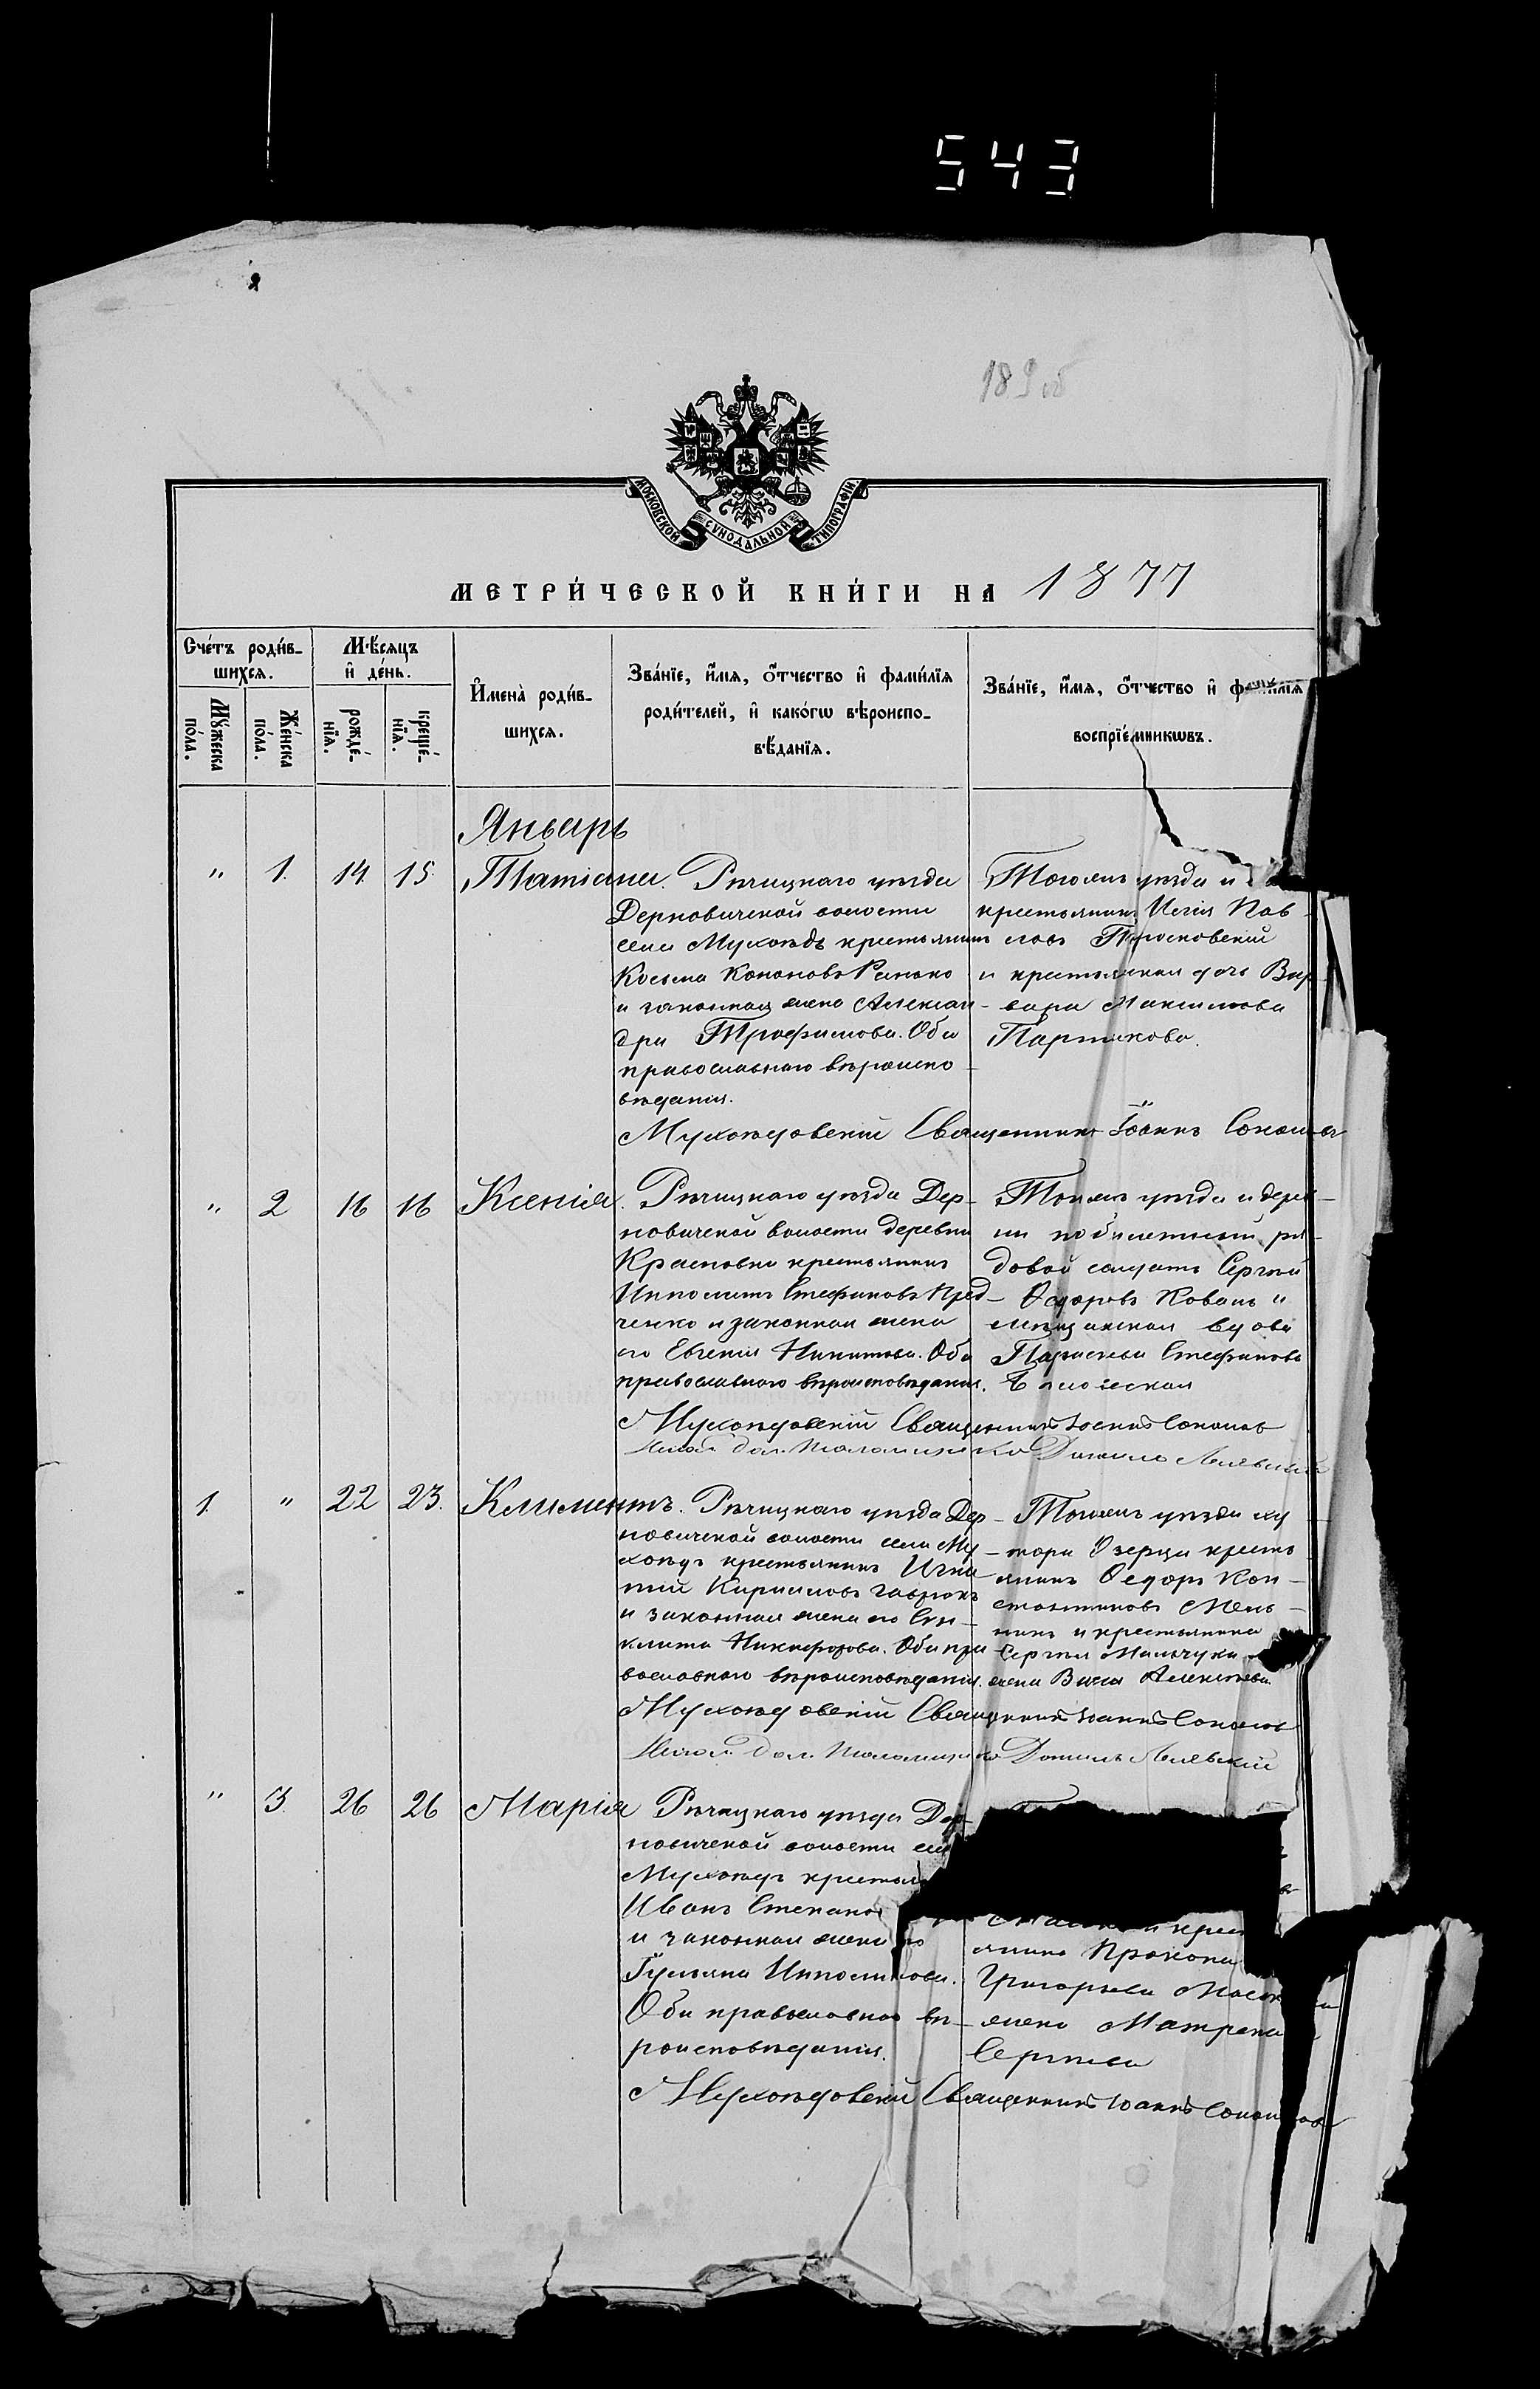 543
189 об
МОСКОВСКОЙ СѴНОДАЛЬНОЙ ТИПОГРАФІИ
МЕТРИ́ЧЕСКОЙ КНИ́ГИ НА 1877
Сче́тъ роди́в-
шихсѧ.
Мꙋ́жеска
по́ла.
Же́нска
по́ла.
Мѣ́сѧцъ
и҆ де́нь.
рожде́-
нїѧ.
креще́-
нїѧ.
И҆мена̀ роди́в-
шихсѧ.
Зва́нїе, и҆́мѧ, ѻ҆́тчество и҆ фами́лїѧ
роди́телей, и҆ како́гѡ вѣроиспо-
вѣ́данїѧ.
Зва́нїе, и҆́мѧ, ѻ҆́тчество и҆ фами́лїѧ
воспрїе́мникѡвъ.
Январь
" 1. 14. 15. Татіана.
Рѣчицкаго уѣзда
Дерновичской волости
села Мухоѣдъ крестьянинъ
Косьма Кононовъ
и законная жена Алексан-
дра Трофимова. Оба
православнаго вѣроиспо-
вѣданія.
Тогожъ уѣзда и
крестьянинъ Пав-
ловъ
и крестьянская дочь Вар-
вара Максимова
Мухоѣдовскій Священникъ Іоаннъ Соколовъ
" 2 16 16 Ксенія.
Рѣчицкаго уѣзда Дер-
новичской волости деревни
Красновки крестьянинъ
Ипполитъ Стефановъ Пред-
ченко и законная жена
его Евгенія Никитова. Оба
православнаго вѣроисповѣданія.
Тогожъ уѣзда и дерев-
ни побилетный ря-
довой солдатъ Сергѣй
Ѳедоровъ Коваль и
мѣщанская вдова
Параскева Стефанова
Мухоѣдовскій Священникъ Іоаннъ Соколовъ
Исал. дол. Даніилъ
1. " 22 23. Климентъ.
Рѣчицкаго уѣзда Дер-
новичской волости села Му-
хоѣдъ крестьянинъ Игна-
тій Кирилловъ
и законная жена его Син-
клита Никифорова. Оба пра-
вославнаго вѣроисповѣданія.
Тогожъ уѣзда ху-
тора Озерца кресть-
янинъ Ѳедоръ Кон-
стантиновъ Мель-
никъ и крестьянина
Сергѣя
жена Васса Алексѣева.
Мухоѣдовскій Священникъ Іоаннъ Соколовъ
Исал. дол. Даніилъ
" 3. 26 26 Марія
Рѣчицкаго уѣзда Дер-
новичской волости села
Мухоѣдъ крестьян
Иванъ Степанов
и законная жена его
Іуліана Ипполитова.
Оба православнаго вѣ-
роисповѣданія.
и крест
янина Прокопа
Григорьева
жена Матрена
Сергѣева
Мухоѣдовскій Священникъ Іоаннъ Соколовъ